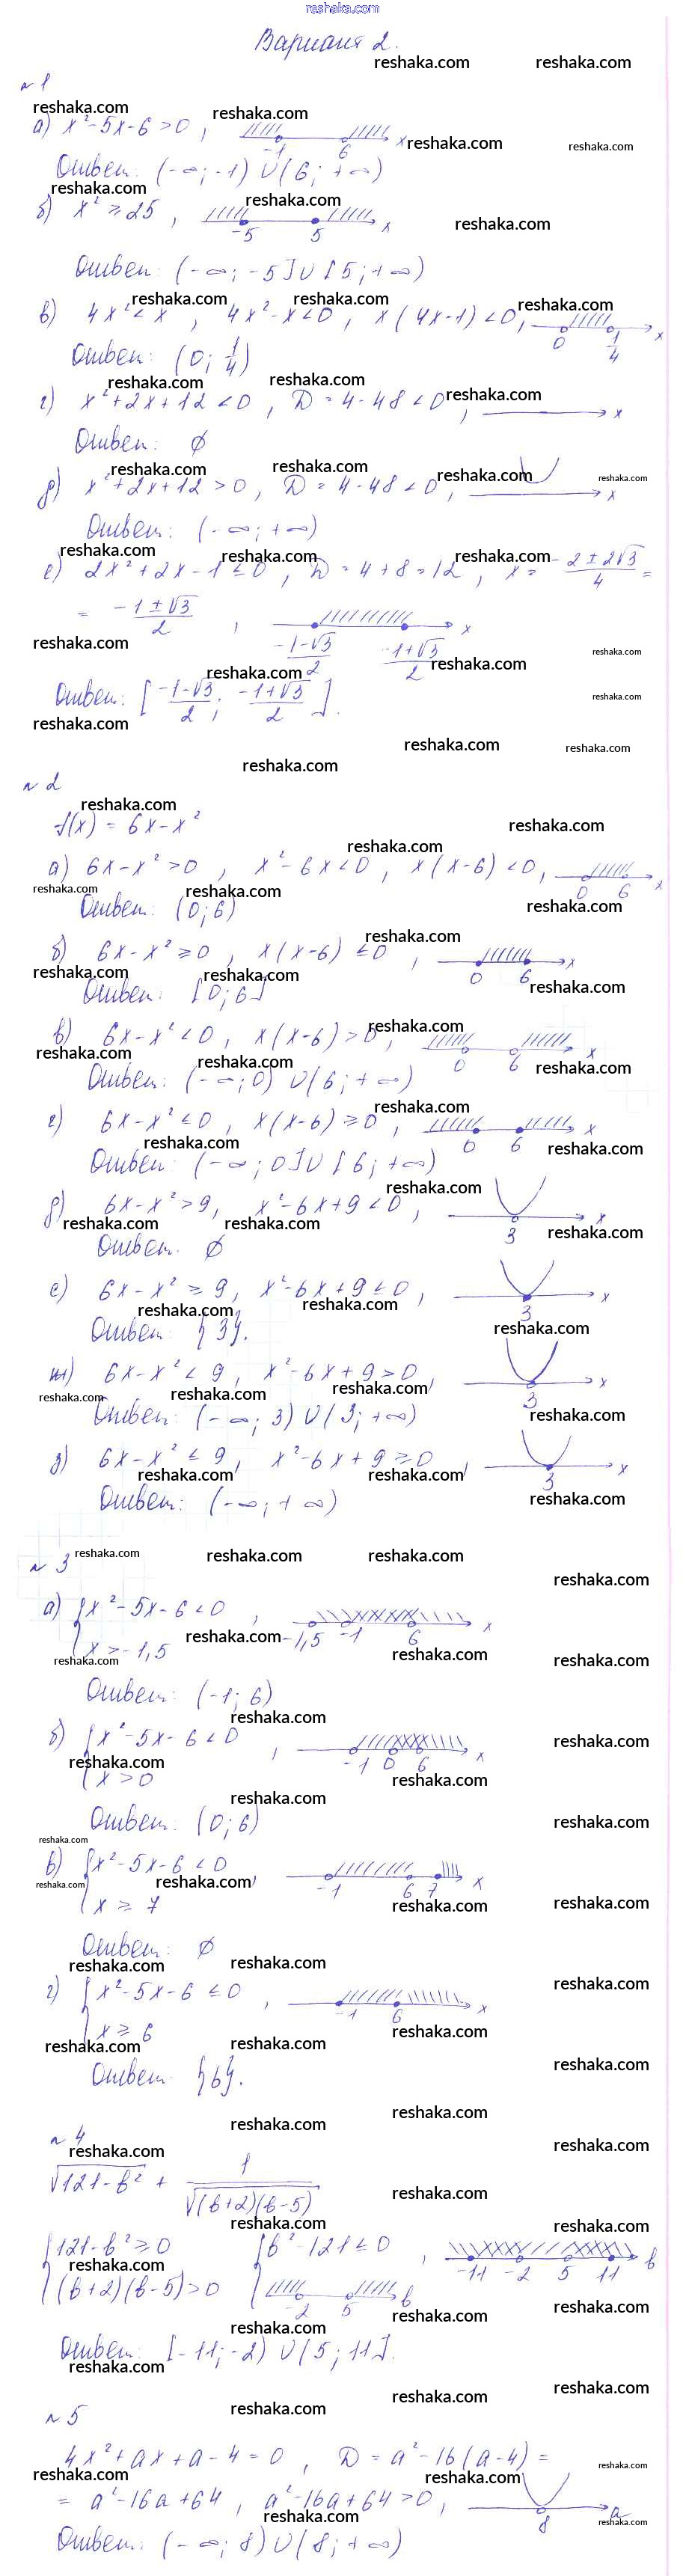 reshaka.com
Вариант 2.
№ 1
а) x² - 5x - 6 > 0 ,
-1 6 x
Ответ: (-∞; -1) ∪ (6; +∞)
б) x² ≥ 25 ,
-5 5 x
Ответ: (-∞; -5] ∪ [5; +∞)
в) 4x² < x , 4x² - x < 0 , x(4x-1) < 0 ,
0 1/4 x
Ответ: (0; 1/4)
г) x² + 2x + 12 < 0 , D = 4 - 48 < 0 , x
Ответ: ∅
д) x² + 2x + 12 > 0 , D = 4 - 48 < 0 , x
Ответ: (-∞; +∞)
е) 2x² + 2x - 1 ≤ 0 , D = 4 + 8 = 12 , x = (-2 ± 2√3)/4 =
= (-1 ± √3)/2 , x
(-1-√3)/2 (-1+√3)/2
Ответ: [(-1-√3)/2 ; (-1+√3)/2].
№ 2
f(x) = 6x - x²
а) 6x - x² > 0 , x² - 6x < 0 , x(x-6) < 0 ,
0 6 x
Ответ: (0; 6)
б) 6x - x² ≥ 0 , x(x-6) ≤ 0 ,
0 6 x
Ответ: [0; 6]
в) 6x - x² < 0 , x(x-6) > 0 ,
0 6 x
Ответ: (-∞; 0) ∪ (6; +∞)
г) 6x - x² ≤ 0 , x(x-6) ≥ 0 ,
0 6 x
Ответ: (-∞; 0] ∪ [6; +∞)
д) 6x - x² > 9 , x² - 6x + 9 < 0 ,
3 x
Ответ: ∅
е) 6x - x² ≥ 9 , x² - 6x + 9 ≤ 0 ,
3 x
Ответ: {3}.
ж) 6x - x² < 9 , x² - 6x + 9 > 0 ,
3 x
Ответ: (-∞; 3) ∪ (3; +∞)
з) 6x - x² ≤ 9 , x² - 6x + 9 ≥ 0 ,
3 x
Ответ: (-∞; +∞)
№ 3
а) { x² - 5x - 6 < 0
x > -1,5 ,
-1,5 -1 6 x
Ответ: (-1; 6)
б) { x² - 5x - 6 < 0
x > 0 ,
-1 0 6 x
Ответ: (0; 6)
в) { x² - 5x - 6 < 0
x ≥ 7 ,
-1 6 7 x
Ответ: ∅
г) { x² - 5x - 6 ≤ 0
x ≥ 6 ,
-1 6 x
Ответ: {6}.
№ 4
√(121 - b²) + 1/√((b+2)(b-5))
{ 121 - b² ≥ 0 { b² - 121 ≤ 0 ,
(b+2)(b-5) > 0
-2 5 b
-11 -2 5 11 b
Ответ: [-11; -2) ∪ (5; 11].
№ 5
4x² + ax + a - 4 = 0 , D = a² - 16(a-4) =
= a² - 16a + 64 , a² - 16a + 64 > 0 ,
8 a
Ответ: (-∞; 8) ∪ (8; +∞)